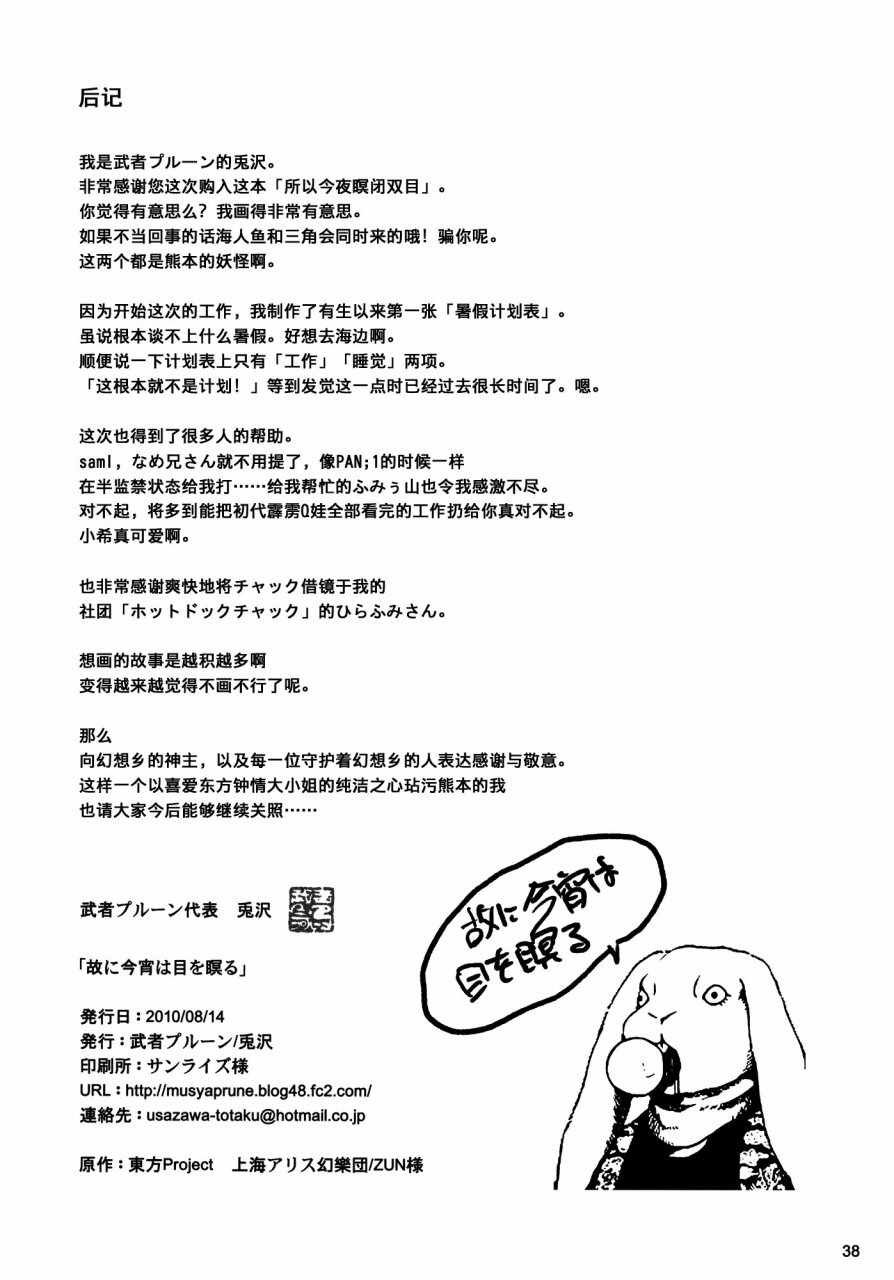 后记
我是武者プルーン的兎沢。
非常感谢您这次购入这本「所以今夜瞑闭双目」。
你觉得有意思么？我画得非常有意思。
如果不当回事的话海人鱼和三角会同时来的哦！骗你呢。
这两个都是熊本的妖怪啊。
因为开始这次的工作，我制作了有生以来第一张「暑假计划表」。
虽说根本谈不上什么暑假。好想去海边啊。
顺便说一下计划表上只有「工作」「睡觉」两项。
「这根本就不是计划！」等到发觉这一点时已经过去很长时间了。嗯。
这次也得到了很多人的帮助。
saml，なめ兄さん就不用提了，像PAN;1的时候一样
在半监禁状态给我打……给我帮忙的ふみぅ山也令我感激不尽。
对不起，将多到能把初代霹雳Q娃全部看完的工作扔给你真对不起。
小希真可爱啊。
也非常感谢爽快地将チャック借镜于我的
社团「ホットドックチャック」的ひらふみさん。
想画的故事是越积越多啊
变得越来越觉得不画不行了呢。
那么
向幻想乡的神主，以及每一位守护着幻想乡的人表达感谢与敬意。
这样一个以喜爱东方钟情大小姐的纯洁之心玷污熊本的我
也请大家今后能够继续关照……
武者プルーン代表　兎沢
「故に今宵は目を瞑る」
発行日：2010/08/14
発行：武者プルーン/兎沢
印刷所：サンライズ様
URL：http://musyaprune.blog48.fc2.com/
連絡先：usazawa-totaku@hotmail.co.jp
原作：東方Project　上海アリス幻樂団/ZUN様
故に今宵は
目を瞑る
38